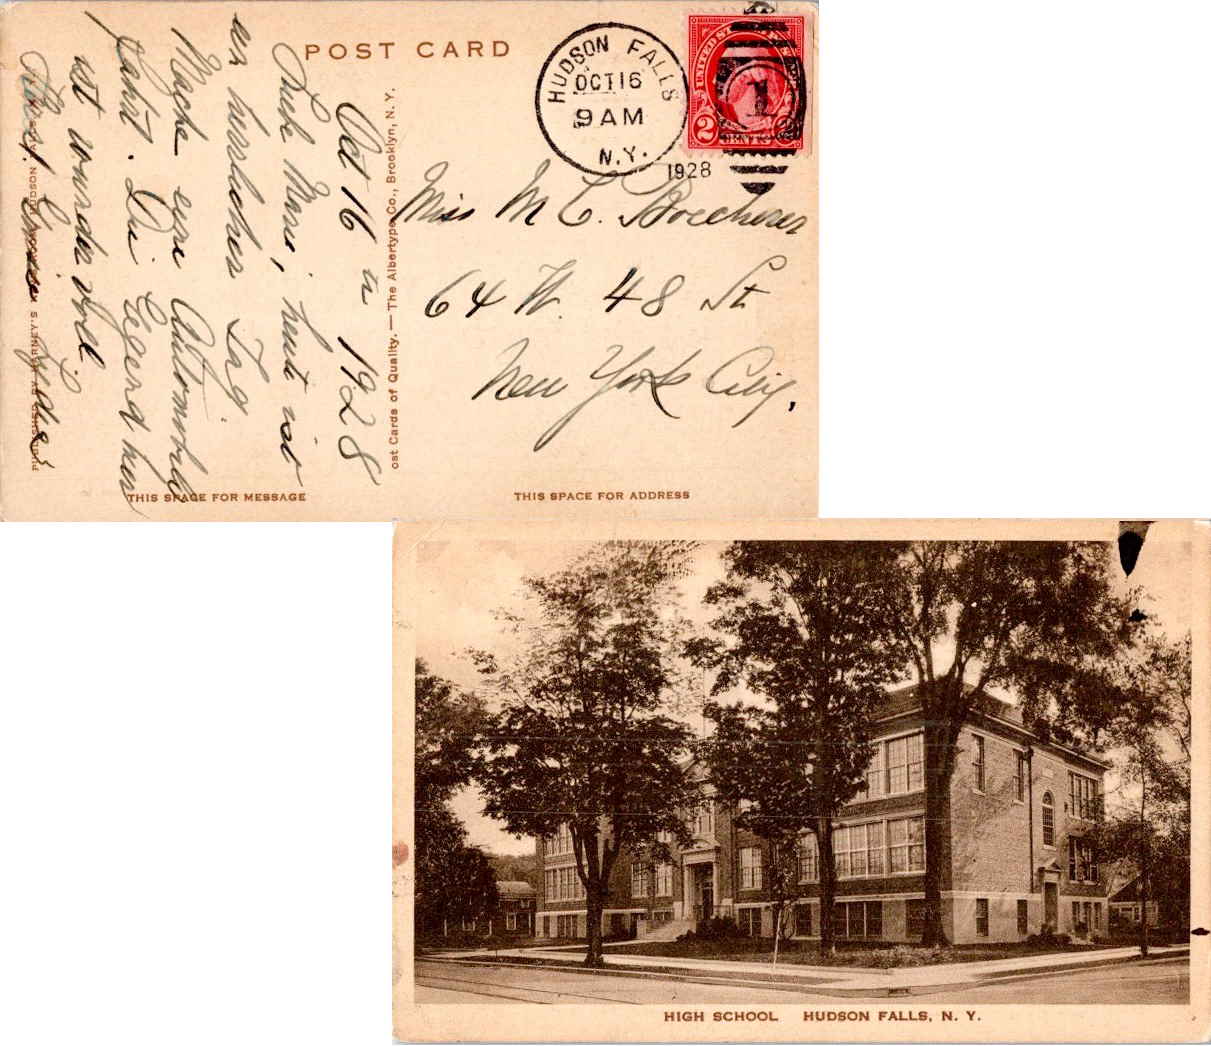 POST CARD
HUDSON FALLS
OCT 16
9 AM
N.Y.
1928
UNITED STATES
2 CENTS 2
1
Oct 16 1928
Liebe Marie, heute ist
ein herrlicher Tag.
Mache eine Automobile
Fahrt. Die Gegend hier
ist wundervoll.
Miss M. C. Boecherer
64 W. 48 St
New York City,
ost Cards of Quality. — The Albertype Co., Brooklyn, N. Y.
THIS SPACE FOR MESSAGE
THIS SPACE FOR ADDRESS
HIGH SCHOOL HUDSON FALLS, N. Y.